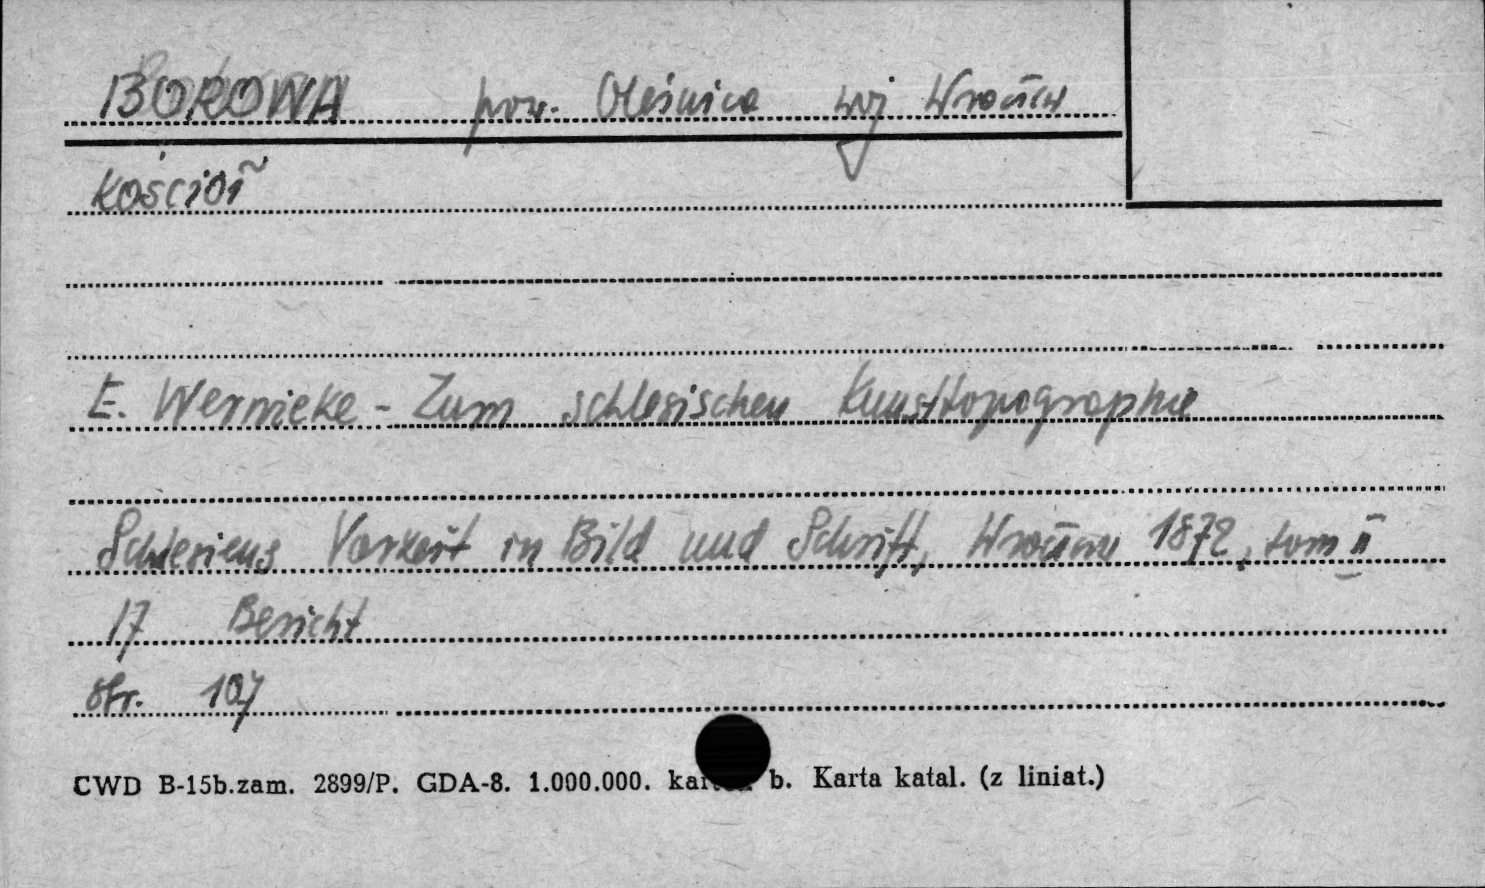 BOROWA pow. Oleśnica woj Wrocław
Kościół
E. Wernicke - Zum schlesischen Kunsttopographie
Schlesiens Vorzeit in Bild und Schrift, Wrocław 1872, tom II
17 Bericht
str. 107
CWD B-15b.zam. 2899/P. GDA-8. 1.000.000. b. Karta katal. (z liniat.)